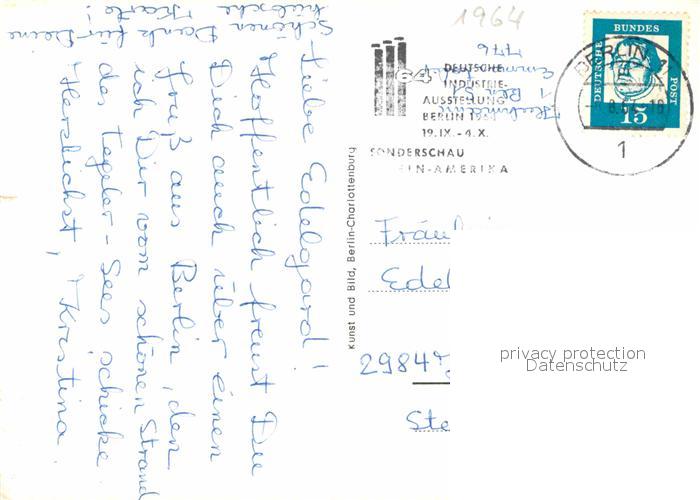 Schönen Dank für Deine
hübsche Karte!
Liebe Edelgard!
Hoffentlich freust Du
Dich auch über einen
Gruß aus Berlin, den
ich Dir vom schönen Strand
des Tegeler-Sees schicke
Herzlichst, Kristina
1964
64
DEUTSCHE
INDUSTRIE-
AUSSTELLUNG
BERLIN
19.IX.-4.X.
SONDERSCHAU
IN-AMERIKA
BERLIN
1
DEUTSCHE BUNDES POST
15
Kunst und Bild, Berlin-Charlottenburg
Edel
2984
Ste
privacy protection
Datenschutz